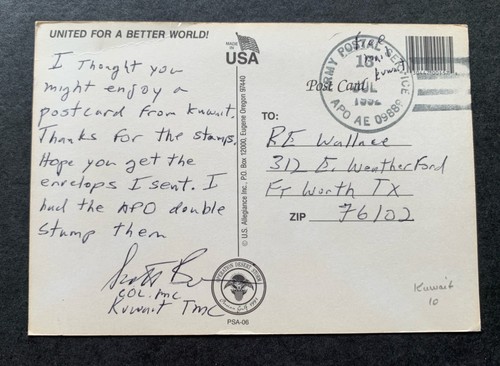 UNITED FOR A BETTER WORLD!
I Thought you
might enjoy a
postcard from Kuwait.
Thanks for the stamps.
Hope you get the
envelops I sent. I
had the APO double
stamp them
COL. MC
Kuwait TMC
MADE IN
USA
© U.S. Allegiance Inc., P.O. Box 12000, Eugene Oregon 97440
OPERATION DESERT STORM
PSA-06
Free
from
Kuwait
ARMY POSTAL SERVICE
JUL
1992
APO AE 09889
Post Card
TO:
RE Wallace
312 E. Weatherford
Ft Worth TX
ZIP 76102
Kuwait
10